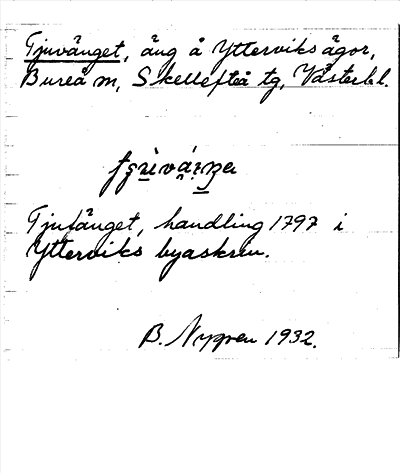 Tjuvänget, äng å Ytterviks ägor,
Bureå m, Skellefteå tg, Västerb.l.
Tjufänget, handling 1797 i
Ytterviks byaskrin.
B. Nygren 1932.